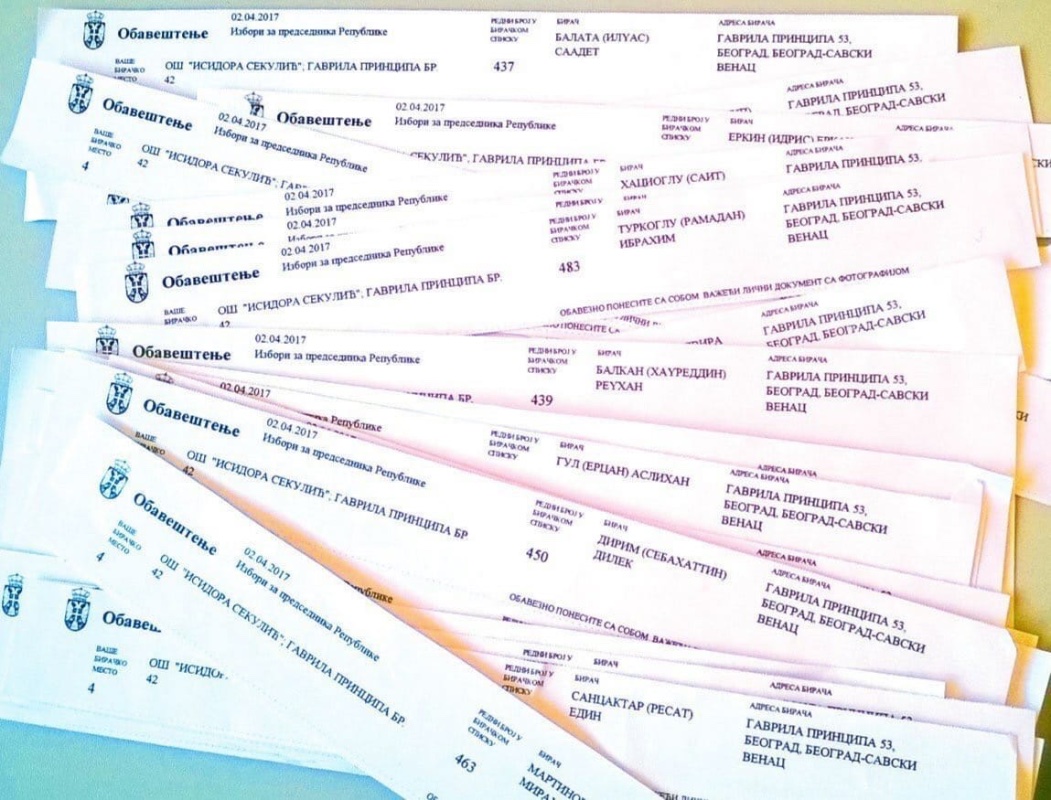 Обавештење
02.04.2017
Избори за председника Републике
РЕДНИ БРОЈ У
БИРАЧКОМ
СПИСКУ
437
БИРАЧ
БАЛАТА (ИЛУАС)
СААДЕТ
АДРЕСА БИРАЧА
ГАВРИЛА ПРИНЦИПА 53,
БЕОГРАД, БЕОГРАД-САВСКИ
ВЕНАЦ
ВАШЕ
БИРАЧКО
МЕСТО
ОШ "ИСИДОРА СЕКУЛИЋ"; ГАВРИЛА ПРИНЦИПА БР.
42
АДРЕСА БИРАЧА
ГАВРИЛА ПРИНЦИПА 53,
БЕОГРАД, БЕОГРАД-САВСКИ
Обавештење
02.04.2017
Избори за председника Републике
ВАШЕ
БИРАЧКО
МЕСТО
4
ОШ "ИСИДОРА СЕКУЛИЋ";
42
Обавештење
02.04.2017
Избори за председника Републике
РЕДНИ БРОЈ У
БИРАЧКОМ
СПИСКУ
БИРАЧ
ЕРКИН (ИДРИС)
АДРЕСА БИРАЧА
СЕКУЛИЋ"; ГАВРИЛА ПРИНЦИПА
Обавештење
02.04.2017
Избори за председника Републике
РЕДНИ БРОЈ У
БИРАЧКОМ
СПИСКУ
БИРАЧ
ХАЦИОГЛУ (САИТ)
АДРЕСА БИРАЧА
ГАВРИЛА ПРИНЦИПА 53,
Обавештење
02.04.2017
Обавештење
02.04.2017
Избори за председника Републике
РЕДНИ БРОЈ У
БИРАЧКОМ
СПИСКУ
483
БИРАЧ
ТУРКОГЛУ (РАМАДАН)
ИБРАХИМ
АДРЕСА БИРАЧА
ГАВРИЛА ПРИНЦИПА 53,
БЕОГРАД, БЕОГРАД-САВСКИ
ВЕНАЦ
ВАШЕ
БИРАЧКО
ОШ "ИСИДОРА СЕКУЛИЋ"; ГАВРИЛА ПРИНЦИПА БР.
42
ОБАВЕЗНО ПОНЕСИТЕ СА СОБОМ ВАЖЕЋИ ЛИЧНИ ДОКУМЕНТ СА ФОТОГРАФИЈОМ
ПОНЕСИТЕ СА
ГАВРИЛА ПРИНЦИПА 53,
БЕОГРАД, БЕОГРАД-САВСКИ
Обавештење
02.04.2017
Избори за председника Републике
РЕДНИ БРОЈ У
БИРАЧКОМ
СПИСКУ
439
БИРАЧ
БАЛКАН (ХАУРЕДДИН)
РЕУХАН
АДРЕСА БИРАЧА
ГАВРИЛА ПРИНЦИПА 53,
БЕОГРАД, БЕОГРАД-САВСКИ
ВЕНАЦ
02.04.2017
Републике
РЕДНИ БРОЈ У
БИРАЧКОМ
СПИСКУ
БИРАЧ
ГУЛ (ЕРЦАН) АСЛИХАН
АДРЕСА БИРАЧА
АДРЕСА БИРАЧА
ГАВРИЛА ПРИНЦИПА 53,
БЕОГРАД, БЕОГРАД-САВСКИ
ВЕНАЦ
Обавештење
02.04.2017
Избори за председника Републике
ВАШЕ
ОШ "ИСИДОРА СЕКУЛИЋ"; ГАВРИЛА ПРИНЦИПА БР
42
РЕДНИ БРОЈ У
БИРАЧКОМ
СПИСКУ
450
БИРАЧ
ДИРИМ (СЕБАХАТТИН)
ДИЛЕК
АДРЕСА БИРАЧА
АДРЕСА БИРАЧА
ГАВРИЛА ПРИНЦИПА 53,
БЕОГРАД, БЕОГРАД-САВСКИ
ВЕНАЦ
ОБАВЕЗНО ПОНЕСИТЕ СА СОБОМ
Обавештење
02.04.2017
Избори за председника Републике
ВАШЕ
БИРАЧКО
МЕСТО
4
ОШ "ИСИДОРА СЕКУЛИЋ"; ГАВРИЛА ПРИНЦИПА БР.
42
РЕДНИ БРОЈ У
БИРАЧКОМ
СПИСКУ
463
БИРАЧ
РЕДНИ БРОЈ У
БИРАЧ
АДРЕСА БИРАЧА
РЕДНИ БРОЈ У
БИРАЧКОМ
СПИСКУ
БИРАЧ
САНЦАКТАР (РЕСАТ)
ЕДИН
АДРЕСА БИРАЧА
ГАВРИЛА ПРИНЦИПА 53,
БЕОГРАД, БЕОГРАД-САВСКИ
ВЕНАЦ
ВАШЕ
БИРАЧКО
МЕСТО
4
42